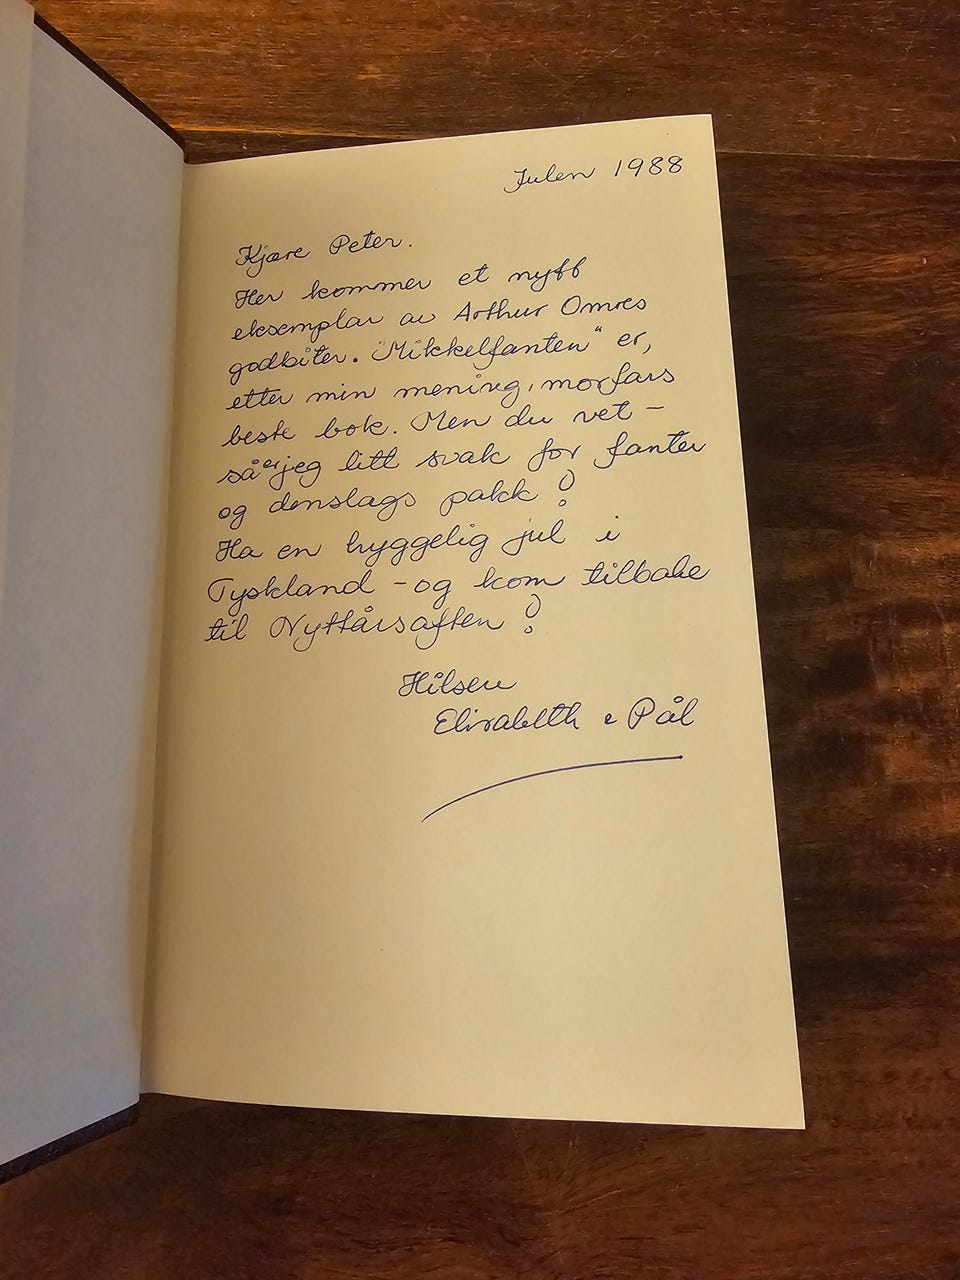 Julen 1988
Kjære Peter.
Her kommer et nytt
eksemplar av Arthur Omres
godbiter. "Mikkelfanten" er,
etter min mening, morfars
beste bok. Men du vet -
så er jeg litt svak for fanter
og denslags pakk!
Ha en hyggelig jul i
Tyskland - og kom tilbake
til Nyttårsaften!
Hilsen
Elisabeth e Pål